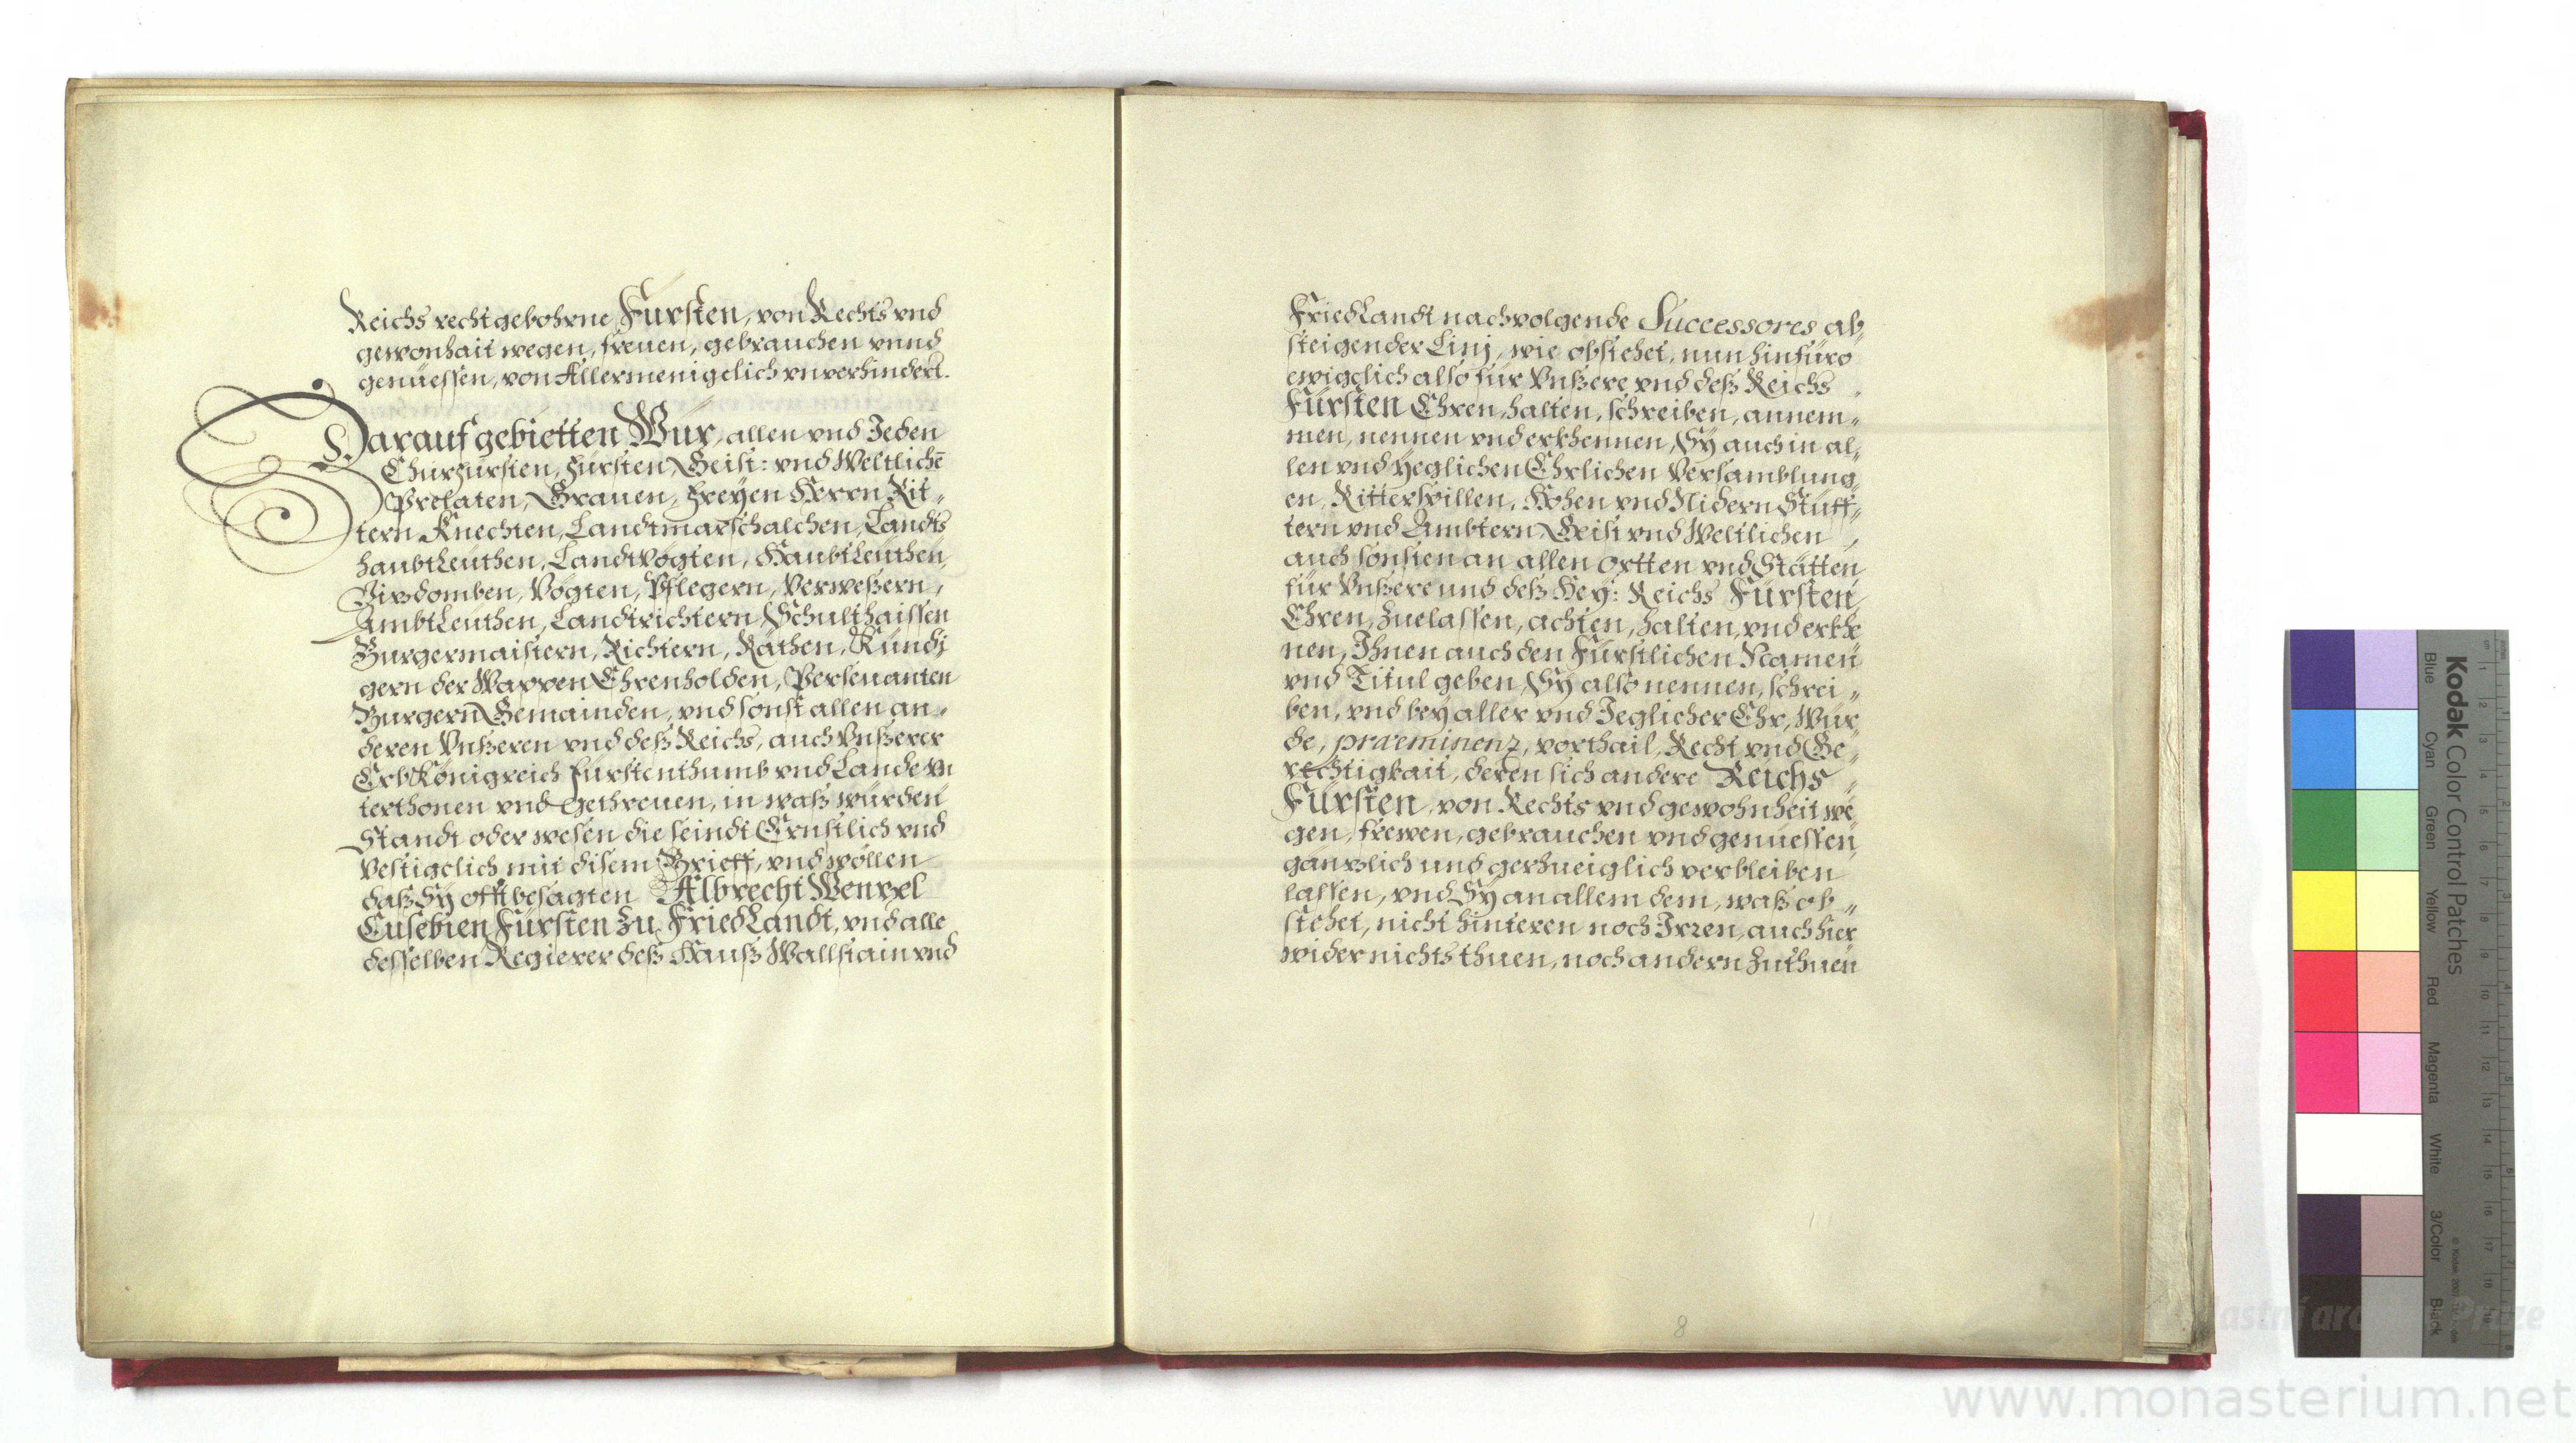 Reichs recht gebohrne Fürsten, von Rechts vnd
gewonhait wegen, freuen, gebrauchen vnnd
genüessen, von Allermenigelich vnverhindert.
Darauf gebietten Wür, allen vnd Jeden
Churfürsten, Fürsten Geist: vnd Weltlichē
Prelaten, Grauen, Freyen Herrn Rit„
tern Knechten, Landtmarschalchen, Landts
haubtleüthen, Landtvögten, Haubtleüthen,
Vizdomben, Vögten, Pflegern, Verweßern,
Ambtleuthen, Landtrichtern Schulthaissen
Burgermaistern, Richtern, Räthen, Kündi
gern der Wappen Ehrenholden, Persenanten
Burgern Gemainden, vnd sonst allen an„
deren Vnßeren vnd deß Reichs, auch Vnßerer
ErbKönigreich Fürstenthumb vnd Landen Vn
terthonen vnd gethreuen, in waß würden
Standt oder wesen die seindt Ernstlich vnd
Vestigclich mit disem Brieff, vnd wöllen
daß Sy offtbesagten Albrecht Wenzel
Eusebien Fürsten zu FriedLandt, vnd alle
desselben Regierer deß Hauß Wallstain vnd
FriedLandt nachvolgende Successores ab„
steigender Linj, wie obstehet, nun hinfüro
ewigclich also für Vnßere vnd deß Reichs
Fürsten Ehren, halten, schreiben, annem„
men, nennen vnd erkhennen, Sy auch in al„
len vnd yeglichen Ehrlichen Versamblung„
en, Ritterspillen, Hohen vnd Nidern Stüff„
tern vnd Ambtern, Geist vnd Weltlichen
auch sonsten an allen ortten vnd Stätten
für Vnßere und deß Hey: Reichs Fürsten
Ehren, zuelassen, achten, halten, vnd erkhe
nen, Ihnen auch den Fürstlichen Namen
vnd Titul geben, Sy also nennen, schrei„
ben, vnd bey aller vnd Jeglicher Ehr, Wür„
de, præeminenz, vorthail, Recht vnd Ge„
rechtigkait, deren sich andere Reichs„
Fürsten, von Rechts vnd gewohnheit we„
gen, frewen, gebrauchen vnd genuessen,
gänzlich und gerhueiglich verbleiben
lassen, vnd Sy an allem dem, waß ob„
stehet, nicht hinteren noch Irren, auch hier
wider nichts thuen, noch andern zuthuen
8
Kodak Color Control Patches
Blue
Cyan
Green
Yellow
Red
Magenta
White
3/Color
Black
www.monasterium.net